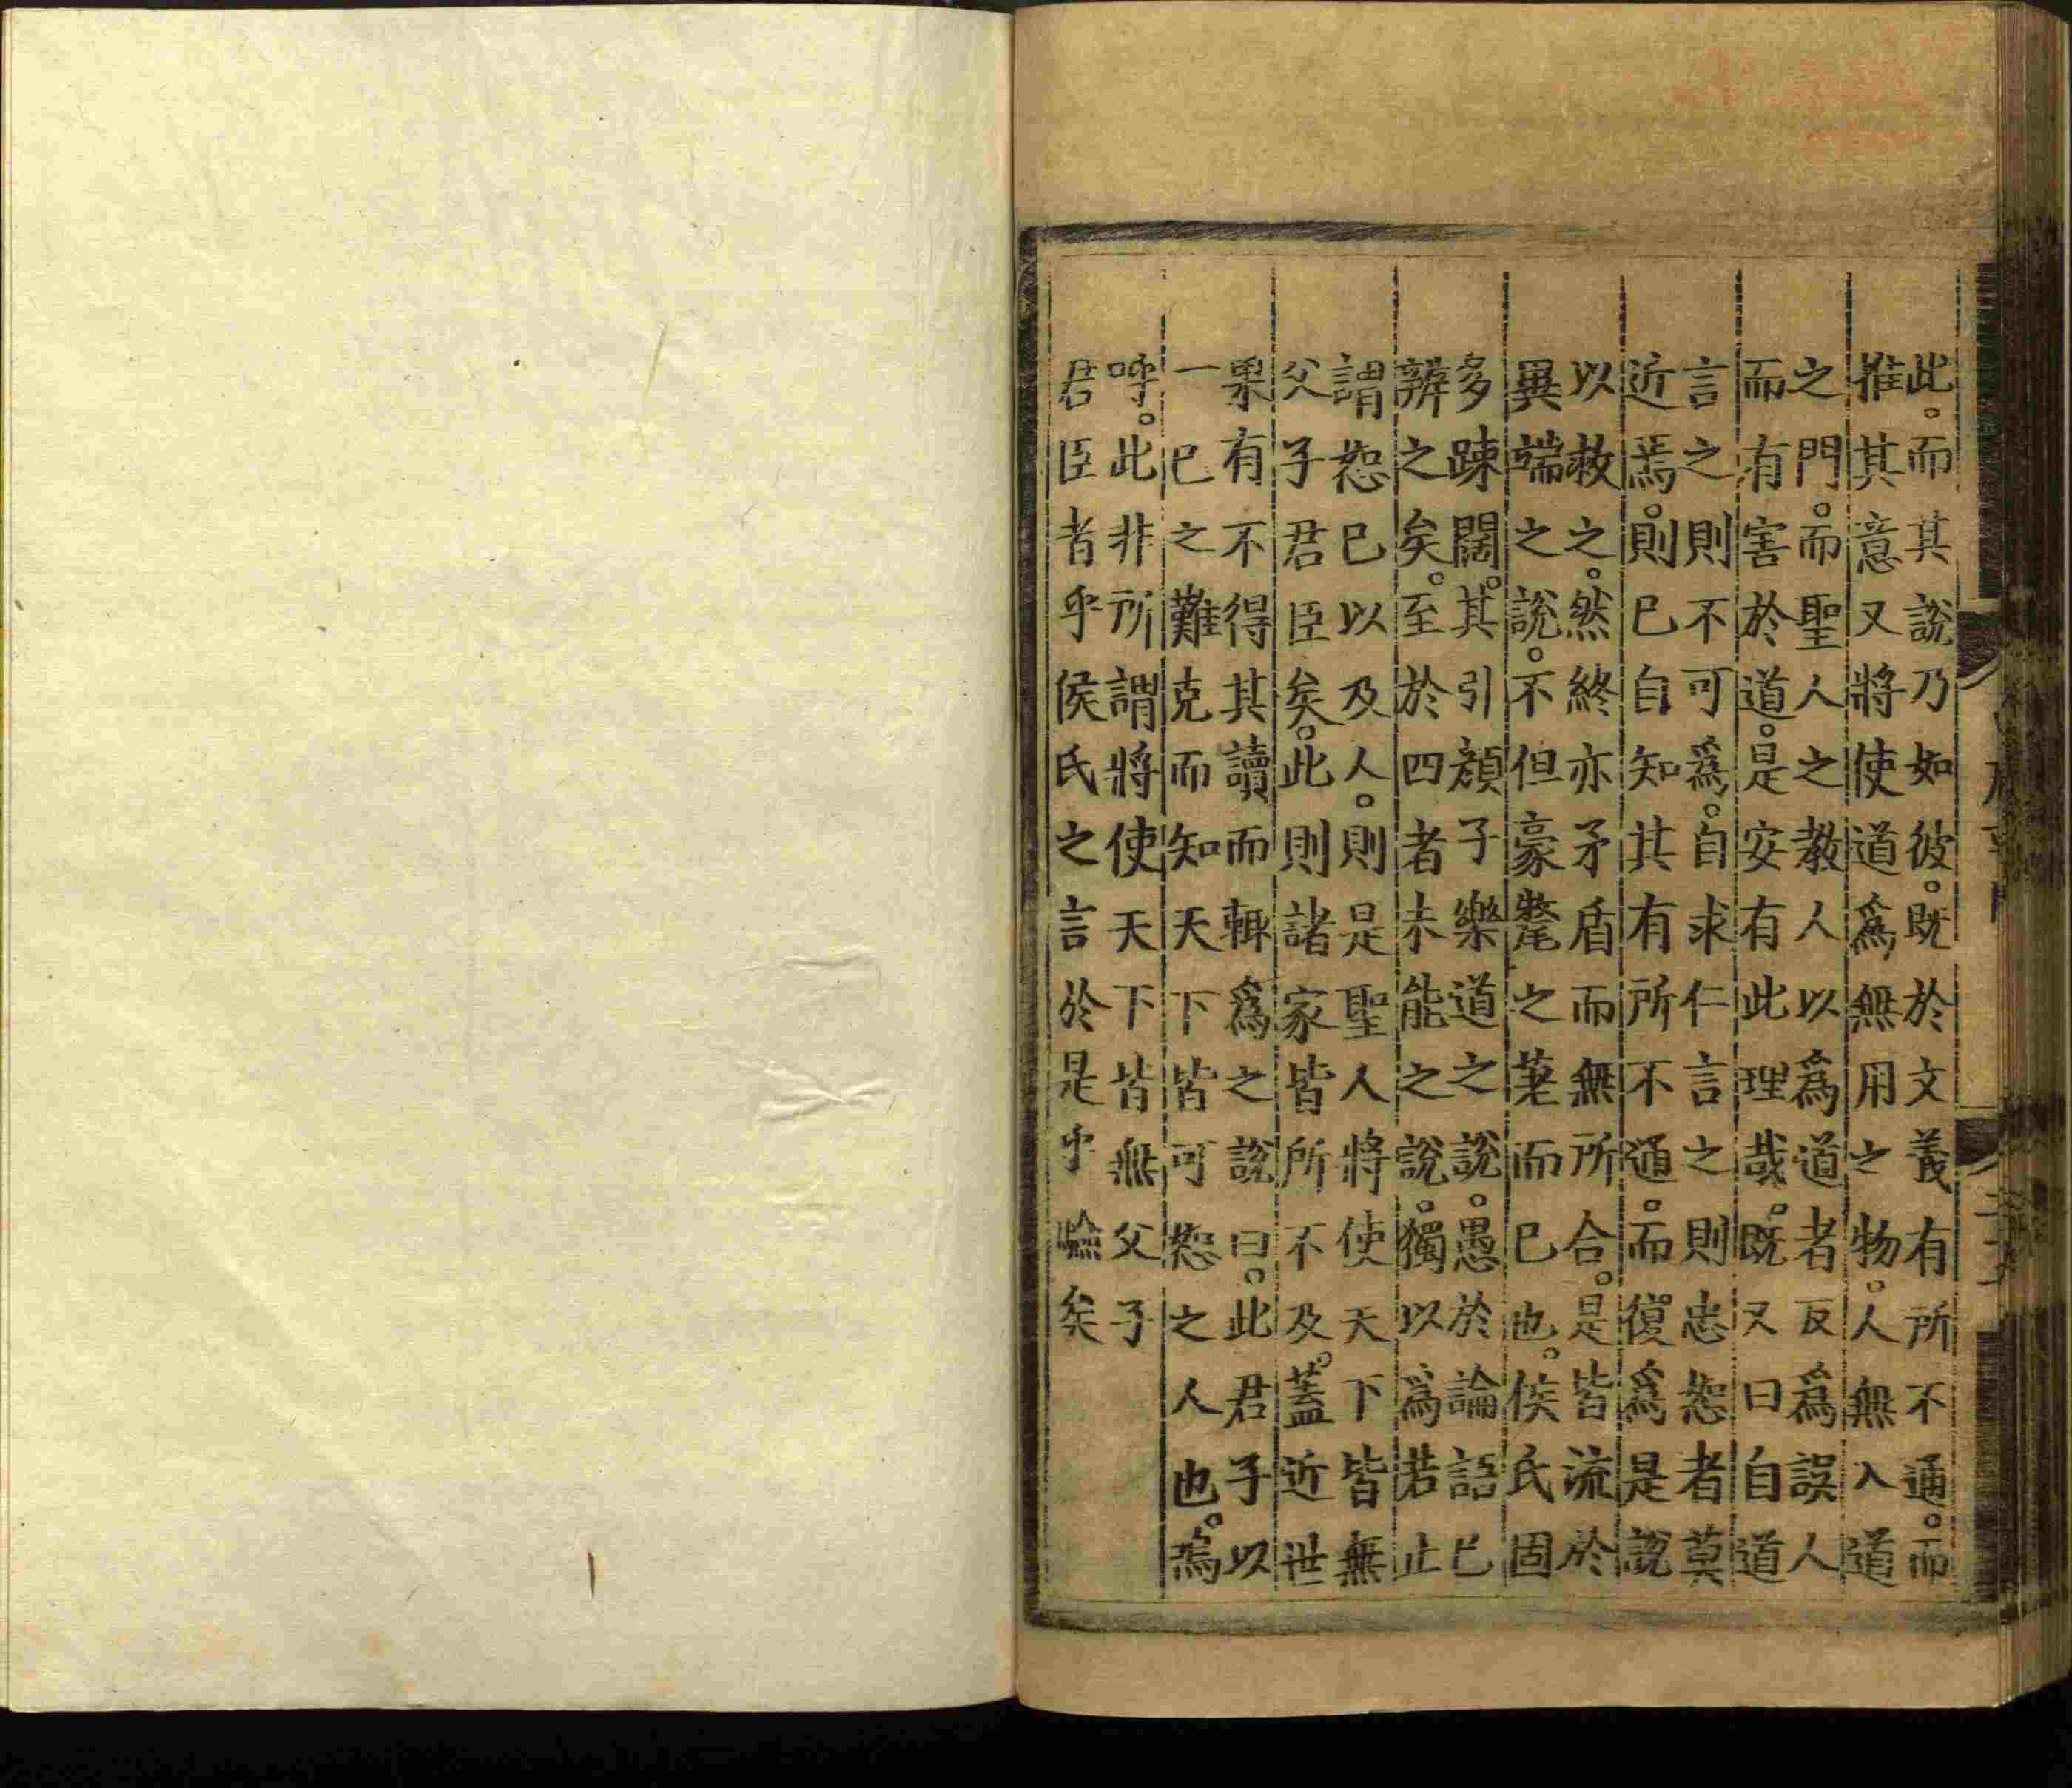 此。而其說乃如彼。既於文義有所不通。而
推其意又將使道爲無用之物。人無入道
之門。而聖人之教人以爲道者反爲誤人
而有害於道。是安有此理哉。既又曰自道
言之則不可爲。自求仁言之則忠恕者莫
近焉。則已自知其有所不通。而復爲是說
以救之。然終亦矛盾而無所合。是皆流於
異端之說。不但毫氂之差而已也。侯氏固
多踈闊。其引顔子樂道之說。愚於論語已
辨之矣。至於四者未能之說。獨以爲若止
謂恕已以及人。則是聖人將使天下皆無
父子君臣矣。此則諸家皆所不及。蓋近世
果有不得其讀而輒爲之說曰。此君子以
一已之難克而知天下皆可恕之人也。嗚
呼。此非所謂將使天下皆無父子
君臣者乎侯氏之言於是乎驗矣